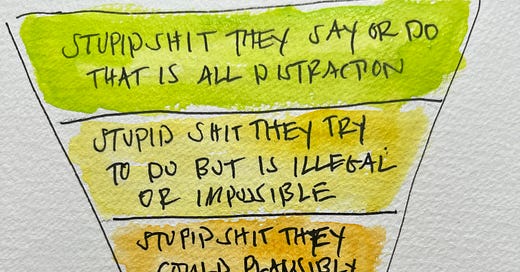 STUPID SHIT THEY SAY OR DO
THAT IS ALL DISTRACTION
STUPID SHIT THEY TRY
TO DO BUT IS ILLEGAL
OR IMPOSSIBLE
STUPID SHIT THEY
COULD PLAUSIBLY